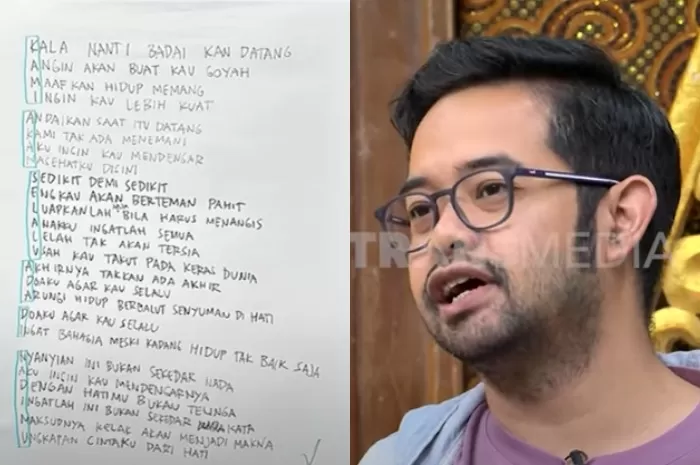 KALA NANTI BADAI KAN DATANG
ANGIN AKAN BUAT KAU GOYAH
MAAFKAN HIDUP MEMANG
INGIN KAU LEBIH KUAT
ANDAIKAN SAAT ITU DATANG
KAMI TAK ADA MENEMANI
AKU INGIN KAU MENDENGAR
NASEHATKU DISINI
SEDIKIT DEMI SEDIKIT
ENGKAU AKAN BERTEMAN PAHIT
LUAPKANLAH SAJA BILA HARUS MENANGIS
ANAKKU INGATLAH SEMUA
LELAH TAK AKAN TERSIA
USAH KAU TAKUT PADA KERAS DUNIA
AKHIRNYA TAKKAN ADA AKHIR
DOAKU AGAR KAU SELALU
ARUNGI HIDUP BERBALUT SENYUMAN DI HATI
DOAKU AGAR KAU SELALU
INGAT BAHAGIA MESKI KADANG HIDUP TAK BAIK SAJA
NYANYIAN INI BUKAN SEKEDAR NADA
AKU INGIN KAU MENDENGARNYA
DENGAN HATIMU BUKAN TELINGA
INGATLAH INI BUKAN SEKEDAR KATA
MAKSUDNYA KELAK AKAN MENJADI MAKNA
UNGKAPAN CINTAKU DARI HATI
TRANSMEDIA